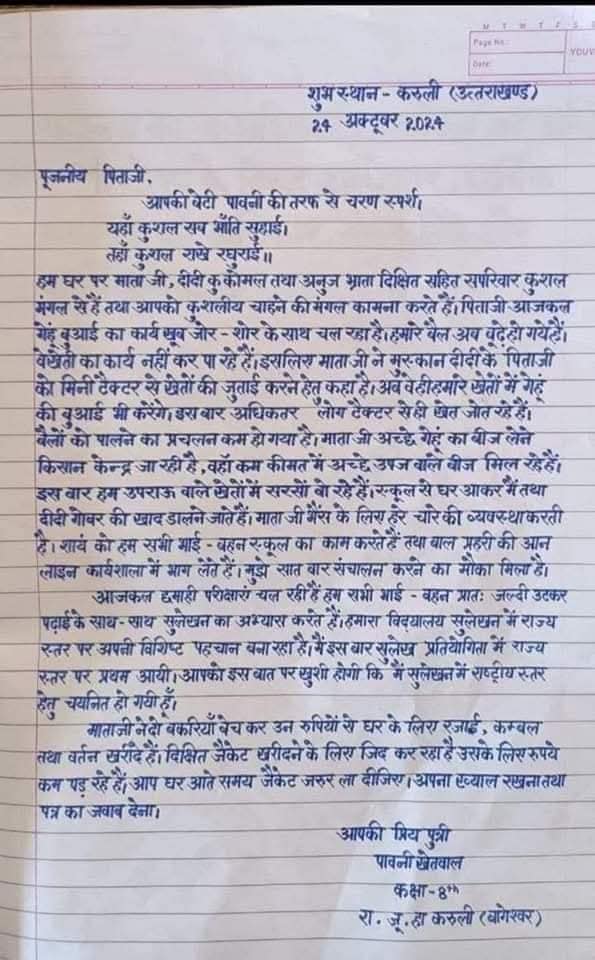 M T W T F S S
Page No.:
YOUVA
Date:
शुभ स्थान - करुली (उत्तराखण्ड)
24 अक्टूबर 2024
पूजनीय पिताजी,
आपकी बेटी पावनी की तरफ से चरण स्पर्श।
यहाँ कुशल सब भाँति सुहाई।
तहाँ कुशल राखे रघुराई॥
हम घर पर माताजी, दीदी कु कोमल तथा अनुज भ्राता दिक्षित सहित सपरिवार कुशल
मंगल से हैं तथा आपकी कुशलीय चाहने की मंगल कामना करते हैं। पिताजी आजकल
गेहूं बुआई का कार्य खूब जोर - शोर के साथ चल रहा है। हमारे बैल अब बूढ़े हो गये हैं।
वे खेती का कार्य नहीं कर पा रहे हैं। इसलिए माताजी ने मुस्कान दीदी के पिताजी
को मिनी टैक्टर से खेतों की जुताई करने हेतु कहा है। अब वही हमारे खेतों में गेहूं
की बुआई भी करेंगे। इस बार अधिकतर लोग टैक्टर से ही खेत जोत रहे हैं।
बैलों को पालने का प्रचलन कम हो गया है। माताजी अच्छे गेहूं का बीज लेने
किसान केन्द्र जा रही है, वहाँ कम कीमत में अच्छे उपज वाले बीज मिल रहे हैं।
इस बार हम उपराऊ वाले खेतों में सरसों बो रहे हैं। स्कूल से घर आकर मैं तथा
दीदी गोबर की खाद डालने जाते हैं। माताजी भैंस के लिए हरे चारे की व्यवस्था करती
है। शायं को हम सभी भाई - बहन स्कूल का काम करते हैं तथा बाल प्रहरी की आन
लाइन कार्यशाला में भाग लेते हैं। मुझे सात बार संचालन करने का मौका मिला है।
आजकल छमाही परीक्षाएं चल रही हैं हम सभी भाई - बहन प्रातः जल्दी उठकर
पढ़ाई के साथ-साथ सुलेखन का अभ्यास करते हैं। हमारा विद्यालय सुलेखन में राज्य
स्तर पर अपनी विशिष्ट पहचान बना रहा है। मैं इस बार सुलेख प्रतियोगिता में राज्य
स्तर पर प्रथम आयी। आपको इस बात पर खुशी होगी कि मैं सुलेखन में राष्ट्रीय स्तर
हेतु चयनित हो गयी हूँ।
माताजी ने दो बकरियाँ बेच कर उन रुपियों से घर के लिए रजाई, कम्बल
तथा बर्तन खरीदे हैं। दिक्षित जैकेट खरीदने के लिए जिद कर रहा है उसके लिए रुपये
कम पड़ रहे हैं। आप घर आते समय जैकेट जरुर ला दीजिए। अपना ख्याल रखना तथा
पत्र का जवाब देना।
आपकी प्रिय पुत्री
पावनी खेतवाल
कक्षा - 8th
रा. जू. हा करुली (बागेश्वर)